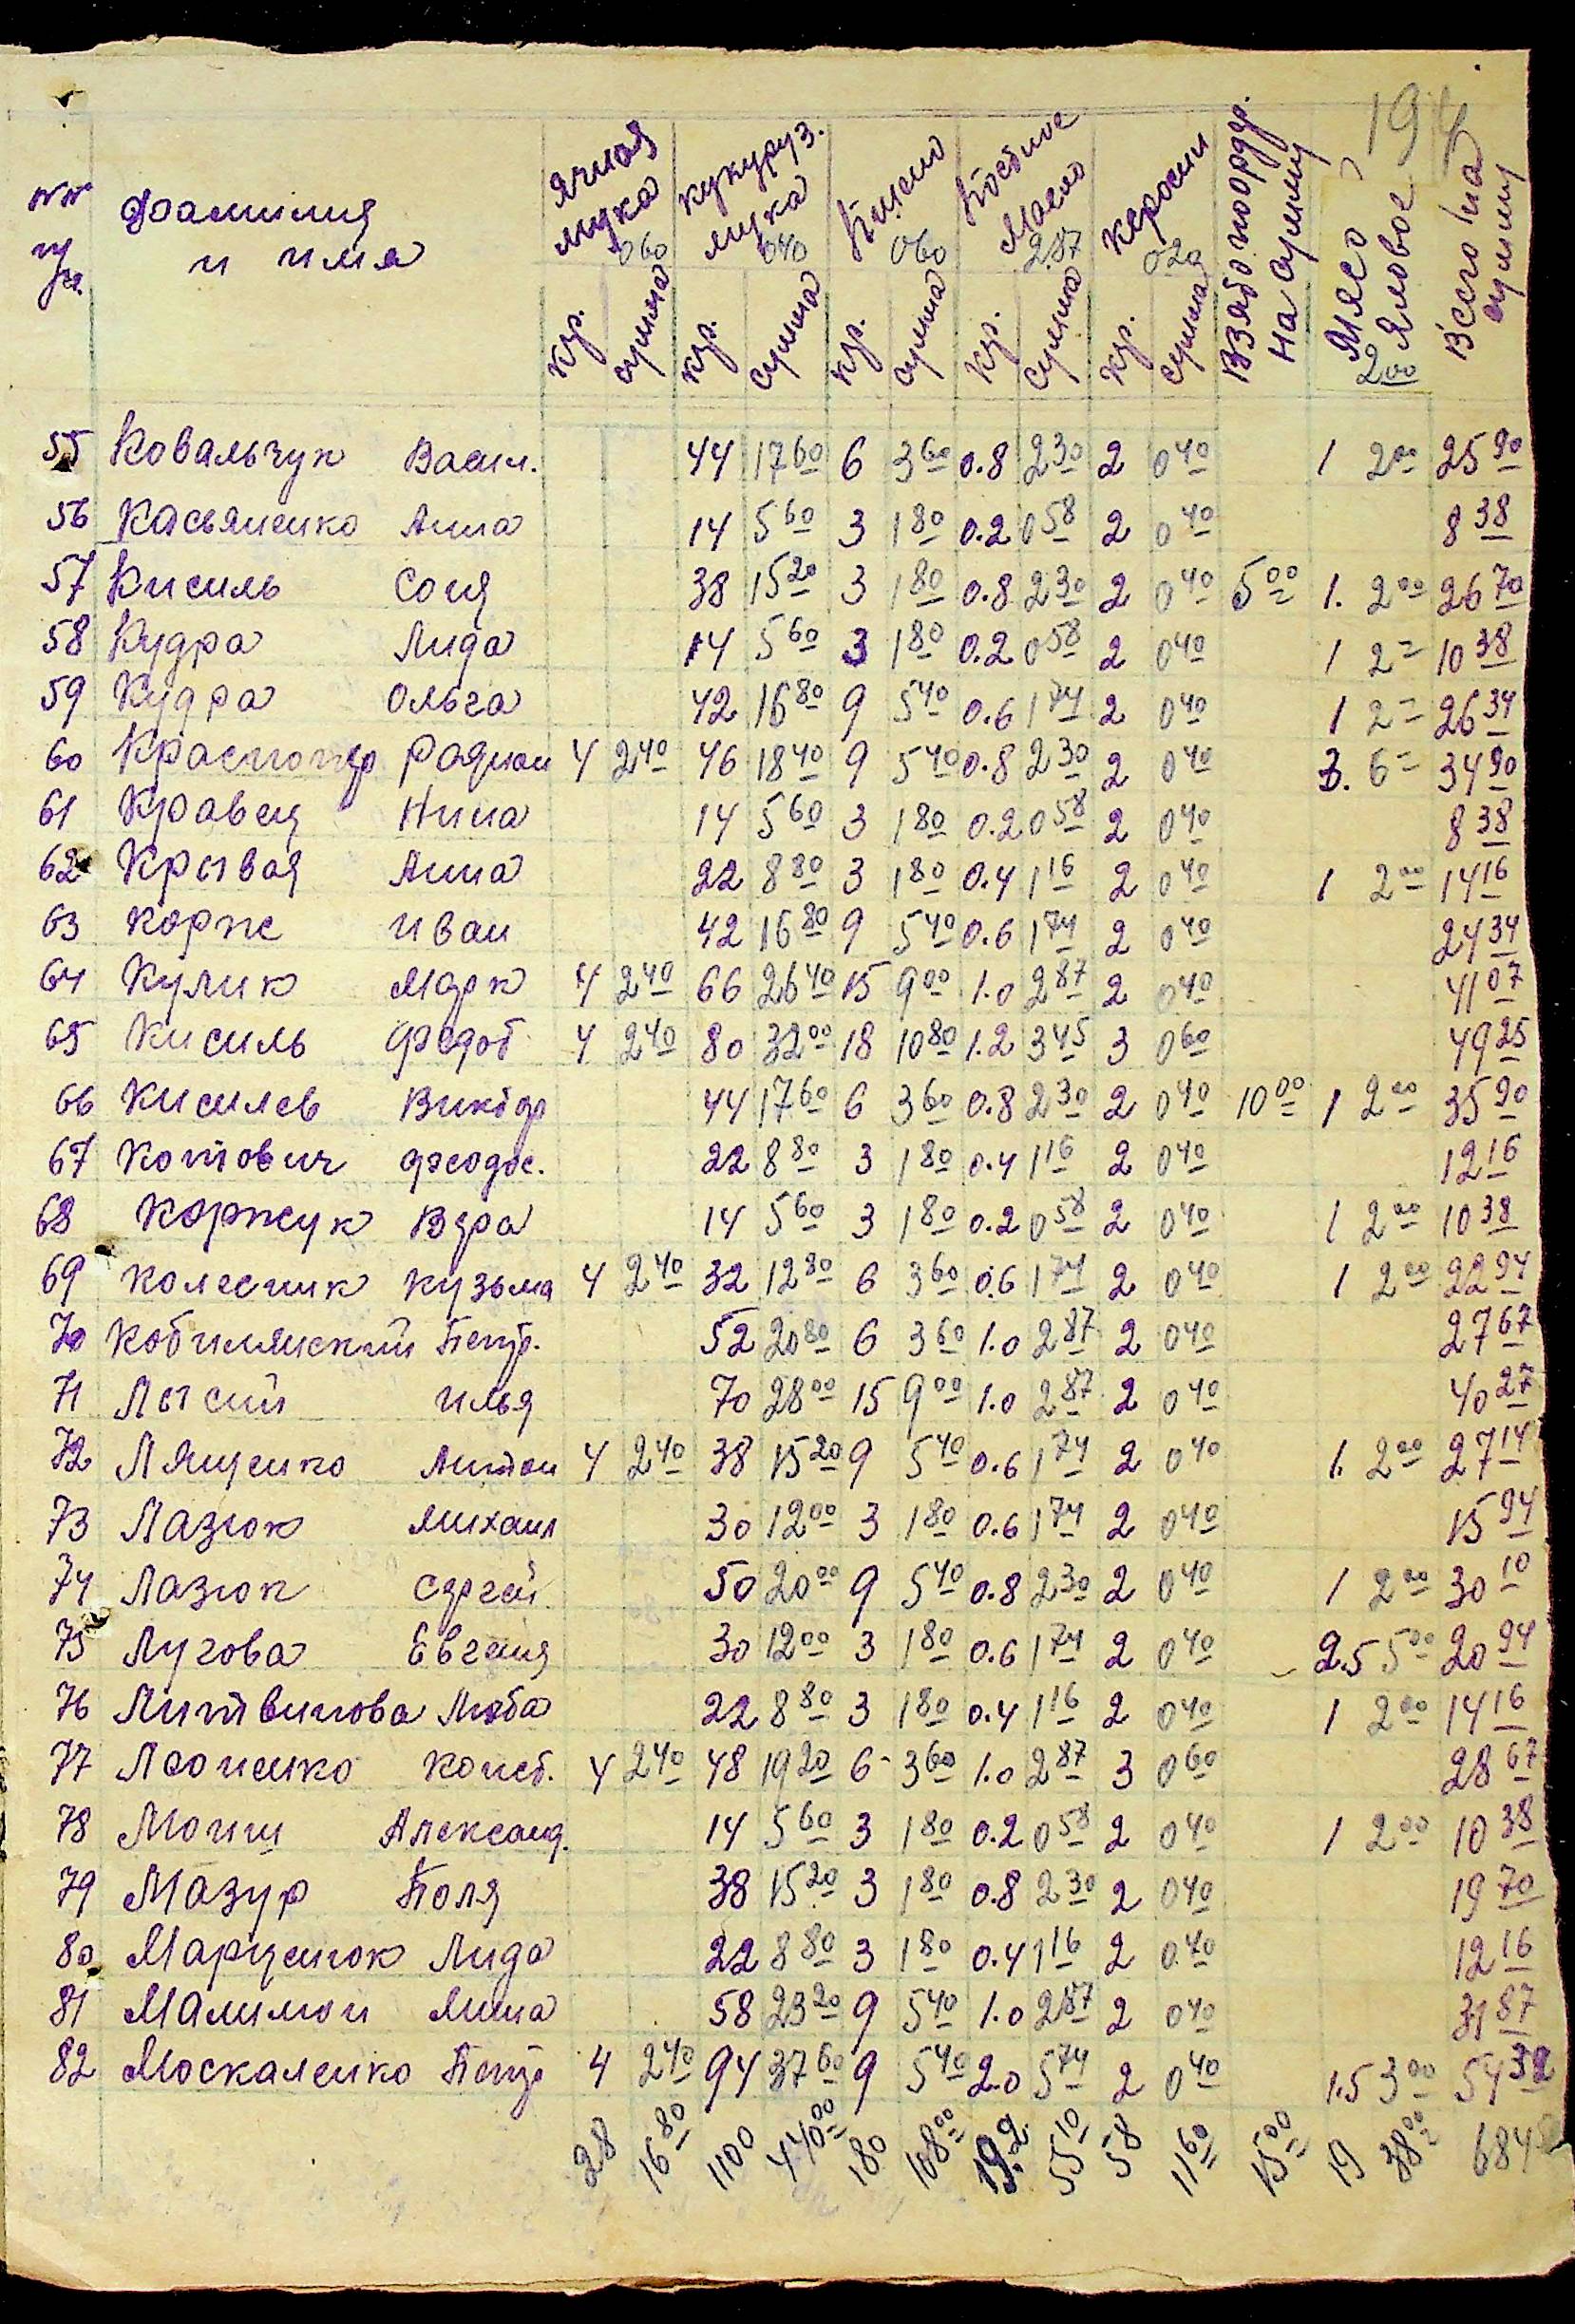 194
NN п/п. Фамилия и имя Ячная мука 0 60 Кукуруз. мука 0 40 Пшено 0 60 Постное масло 2.87 Керосин 0 20 Взято по ордер. на сумму Мясо яловое 2 00 Всего на сумму
кгр. сумма кгр. сумма кгр. сумма кгр. сумма кгр. сумма
55 Ковальчук Васил. 44 17 60 6 3 60 0.8 2 30 2 0 40 1 2 00 25 90
56 Касьяненко Анна 14 5 60 3 1 80 0.2 0 58 2 0 40 8 38
57 Кисиль Соня 38 15 20 3 1 80 0.8 2 30 2 0 40 5 00 1. 2 00 26 70
58 Кудра Лида 14 5 60 3 1 80 0.2 0 58 2 0 40 1 2 = 10 38
59 Кудра Ольга 42 16 80 9 5 40 0.6 1 74 2 0 40 1 2 = 26 34
60 Краснопер Радион 4 2 40 46 18 40 9 5 40 0.8 2 30 2 0 40 3. 6 = 34 90
61 Кравец Нина 14 5 60 3 1 80 0.2 0 58 2 0 40 8 38
62 Крывая Анна 22 8 80 3 1 80 0.4 1 16 2 0 40 1 2 00 14 16
63 Корже Иван 42 16 80 9 5 40 0.6 1 74 2 0 40 24 34
64 Кулик Марк 4 2 40 66 26 40 15 9 00 1.0 2 87 2 0 40 41 07
65 Кисиль Федот 4 2 40 80 32 00 18 10 80 1.2 3 45 3 0 60 49 25
66 Киселев Виктор 44 17 60 6 3 60 0.8 2 30 2 0 40 10 00 1 2 00 35 90
67 Котович Феодос. 22 8 80 3 1 80 0.4 1 16 2 0 40 12 16
68 Коржук Вера 14 5 60 3 1 80 0.2 0 58 2 0 40 1 2 00 10 38
69 Колесник Кузьма 4 2 40 32 12 80 6 3 60 0.6 1 74 2 0 40 1 2 00 22 94
70 Кобилянский Петр. 52 20 80 6 3 60 1.0 2 87 2 0 40 27 67
71 Лысий Илья 70 28 00 15 9 00 1.0 2 87 2 0 40 40 27
72 Лященко Антон 4 2 40 38 15 20 9 5 40 0.6 1 74 2 0 40 1. 2 00 27 14
73 Лазюк Михаил 30 12 00 3 1 80 0.6 1 74 2 0 40 15 94
74 Лазюк Сергей. 50 20 00 9 5 40 0.8 2 30 2 0 40 1 2 00 30 10
75 Лугова Евгения 30 12 00 3 1 80 0.6 1 74 2 0 40 2.5 5 00 20 94
76 Литвинова Люба 22 8 80 3 1 80 0.4 1 16 2 0 40 1 2 00 14 16
77 Леоненко Конст. 4 2 40 48 19 20 6 3 60 1.0 2 87 3 0 60 28 67
78 Могиш Александ. 14 5 60 3 1 80 0.2 0 58 2 0 40 1 2 00 10 38
79 Мазур Поля 38 15 20 3 1 80 0.8 2 30 2 0 40 19 70
80 Марценюк Лида 22 8 80 3 1 80 0.4 1 16 2 0.40 12 16
81 Малимон Миша 58 23 20 9 5 40 1.0 2 87 2 0 40 31 87
82 Москаленко Петр 4 2 40 94 37 60 9 5 40 2.0 5 74 2 0 40 1.5 3 00 54 32
28 16 80 1100 440 00 180 108 00 19.2 55 10 58 11 60 15 00 19 38 00 684